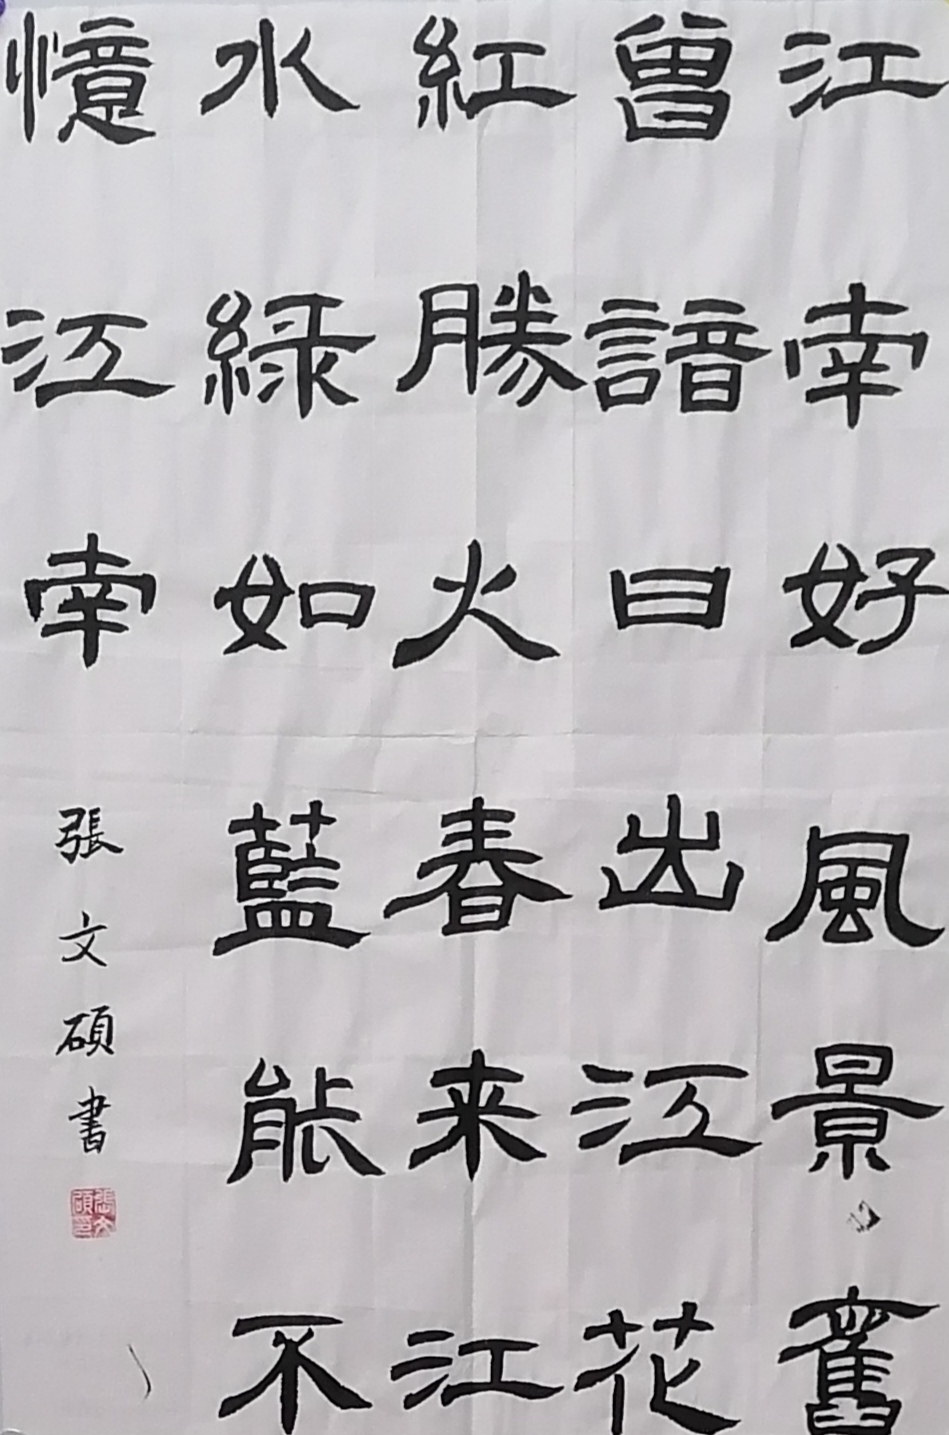 江南好風景舊
曾諳日出江花
紅勝火春来江
水緑如藍能不
憶江南
張文碩書
張文碩印